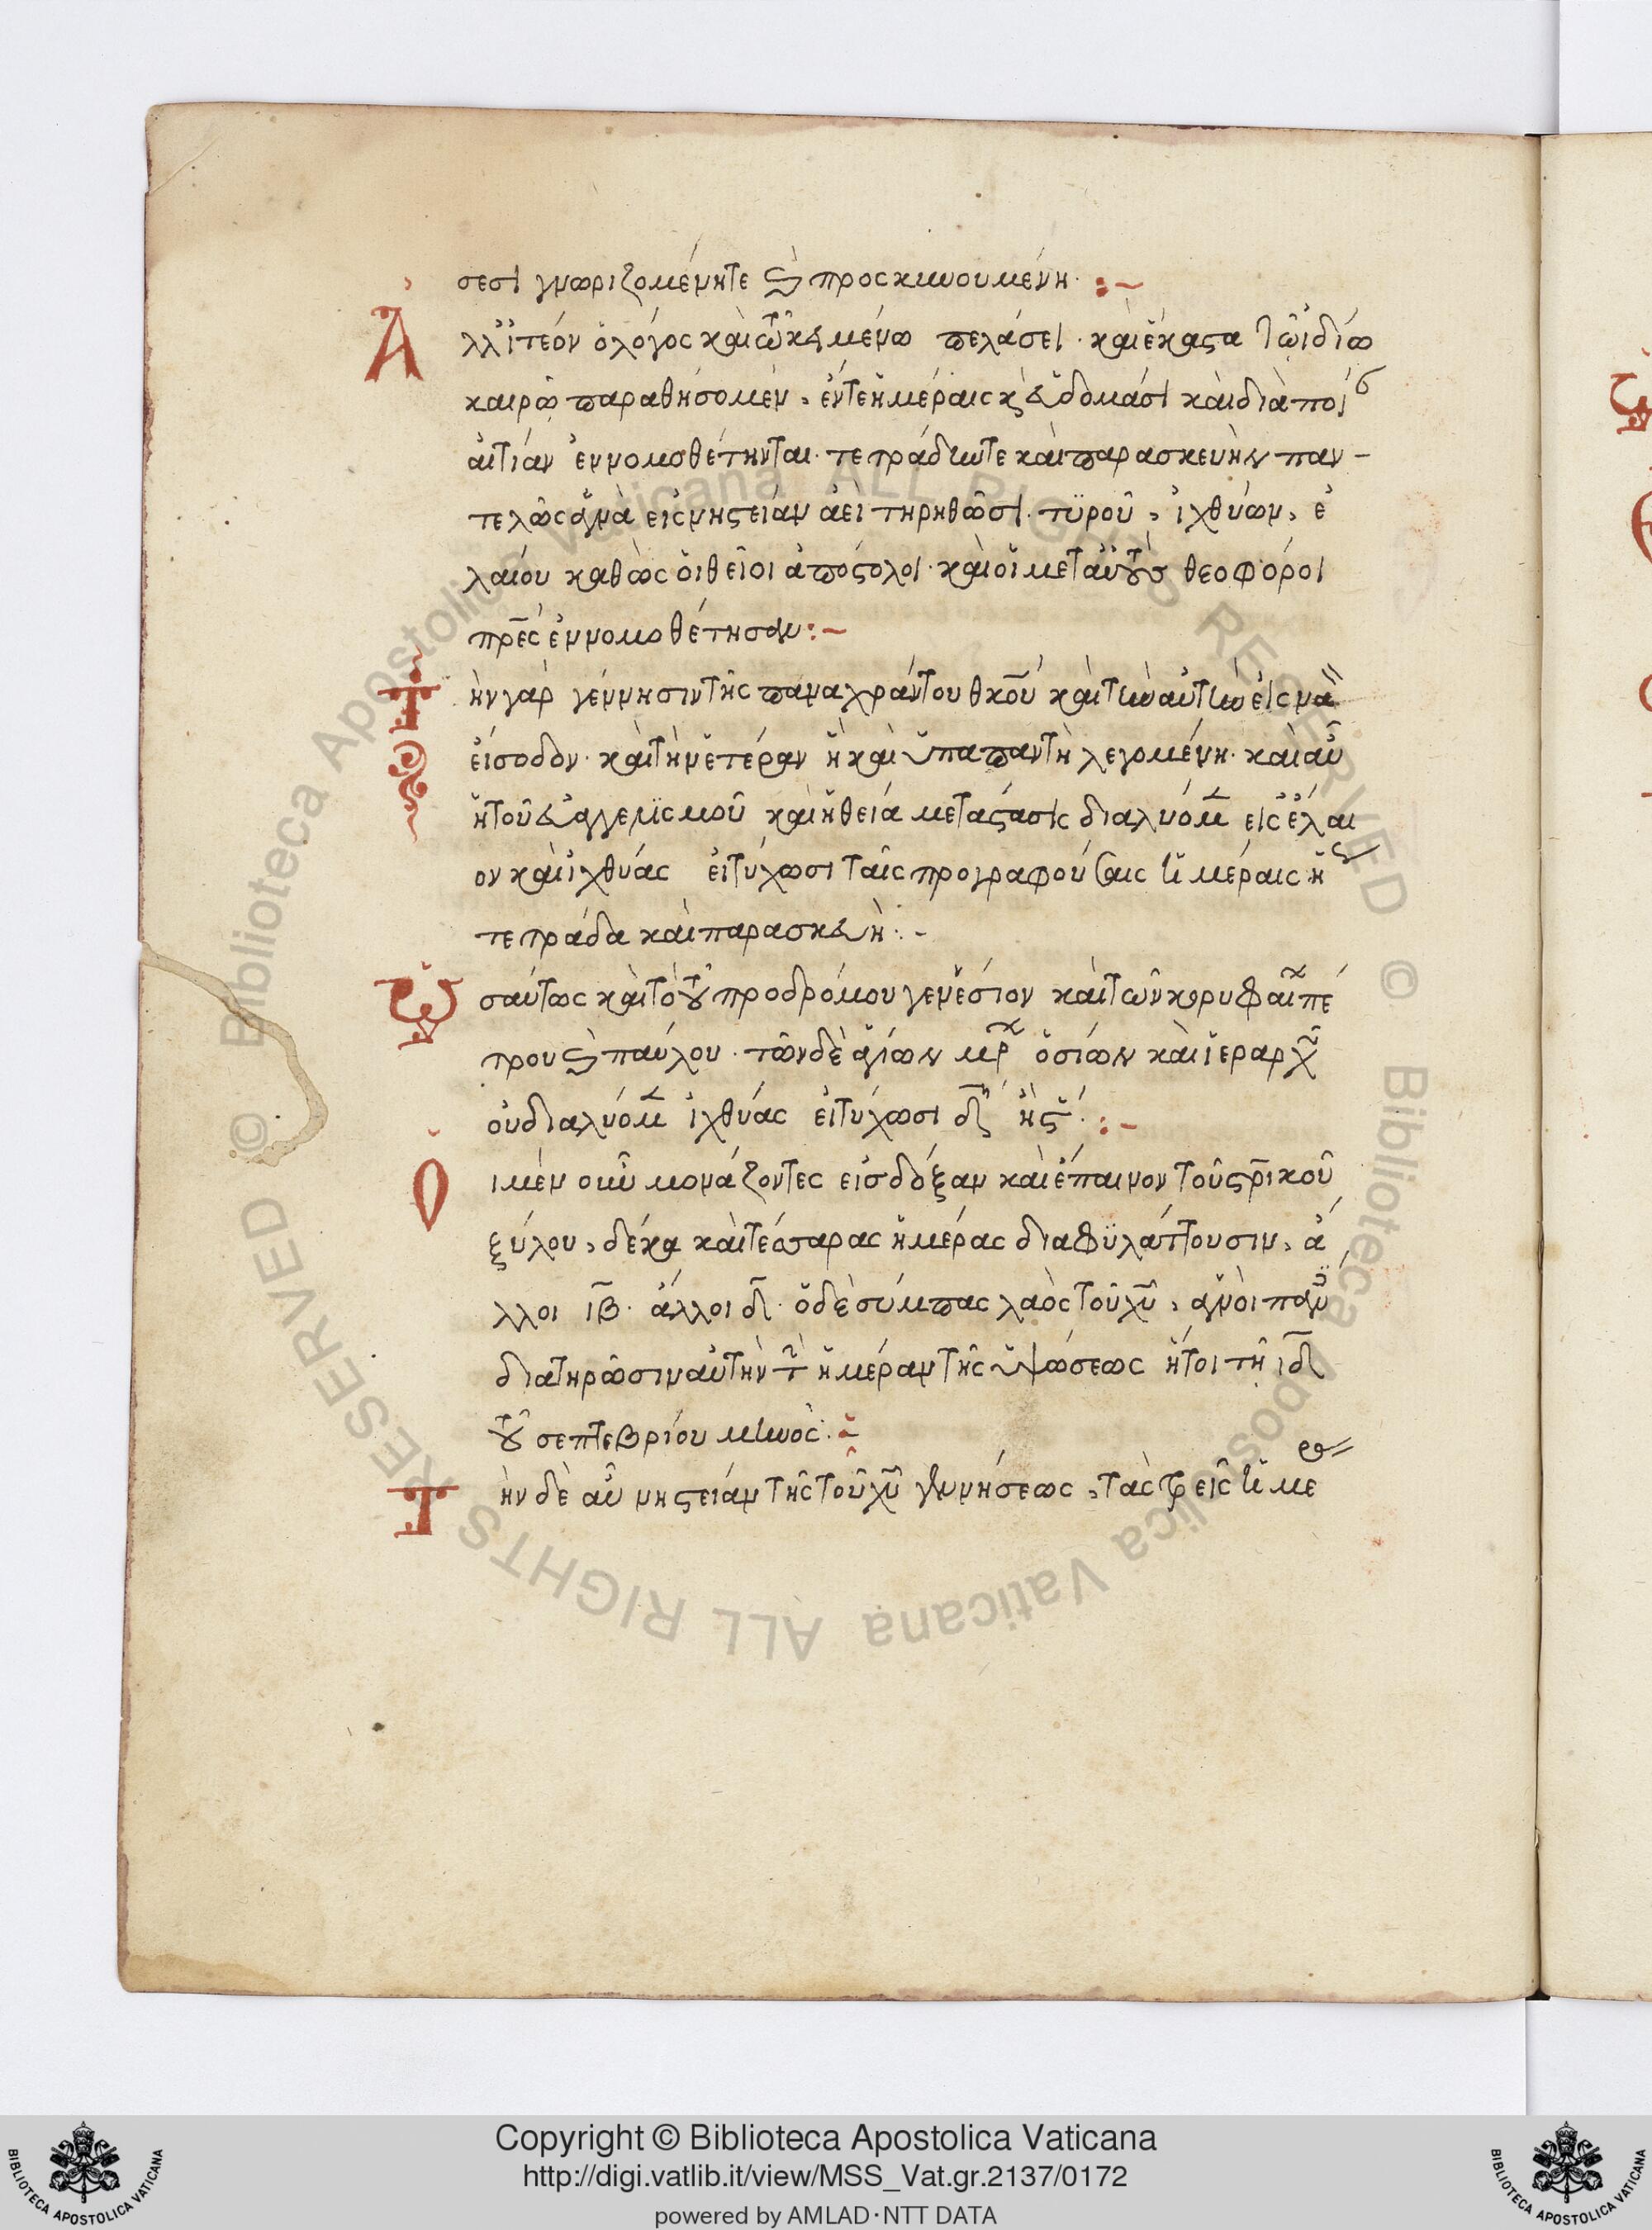 σεσι γνωριζομένητε ϗ προσκυνουμένη :~
Ἀλλ' ἰτέον ὁ λόγος καὶ τῶ κειμένω πελάσει · καὶ ἕκαστα τῶ ἰδίω
καιρῶ παραθήσομεν, ἐν τε ἡμέραις κ̀ ἑβδομάσι καὶ διὰ ποί
αἰτίαν ἐννομοθέτηνται · τετράδην τε καὶ παρασκευὴν παν-
τελῶς ἅμα εἰς νηστείαν ἀεὶ τηρηθῶσι · τϋροῦ, ἰχθύων, ἐ
λαίου καθὼς οἱ θεῖοι ἀπόστολοι · καὶ οἱ μετ αὐτοὺς θεοφόροι
πρ̅ες ἐννομοθέτησαν :~
Τὴν γὰρ γέννησιν τῆς παναχράντου θκοῦ καὶ τὴν αὐτὴν εἰς να
εἴσοδον · καὶ τὴν ἑτέραν ἡ καὶ ὑπαπαντὴ λεγομένη · καὶ αὖ
ἡ τοῦ εὐαγγελισμοῦ καὶ ἡ θεία μετάστασις διαλύομ εἰς ἔλαι
ον καὶ ἰχθύας εἰ τύχωσι ταῖς προγραφούσαις ἡμέραις ἤ
τετράδα καὶ παρασκευή :~
Ὡσαύτως καὶ τὸ τοῦ προδρόμου γενέσιον καὶ τῶν κορυφαί πέ
τρου ϗ παύλου · τῶν δὲ ἁγίων μρ ὁσίων καὶ ἱεραρχ
οὐ διαλύομ ἰχθύας εἰ τύχωσι δ̅ ἢ ς :~
Οἱ μὲν οὖν μονάζοντες εἰς δόξαν καὶ ἔπαινον τοῦ σρ̅ικοῦ
ξύλου, δέκα καὶ τέσσαρας ἡμέρας διαφϋλάττουσιν, ἄ
λλοι ιβ̅ · ἄλλοι δ̅ · ὁ δὲ σύμπας λαὸς τοῦ χυ̅,
διατηρῶσιν αὐτὴν τὴν ἡμέραν τῆς ὑψώσεως ἤτοι τῆ ιδ̅
τοῦ σεπτεβρίου μηνὸς :~
Τὴν δὲ αὖ νηστείαν τῆς τοῦ χυ̅ γεννήσεως, τὰς τρεῖς ἡμε
Copyright © Biblioteca Apostolica Vaticana
http://digi.vatlib.it/view/MSS_Vat.gr.2137/0172
powered by AMLAD·NTT DATA